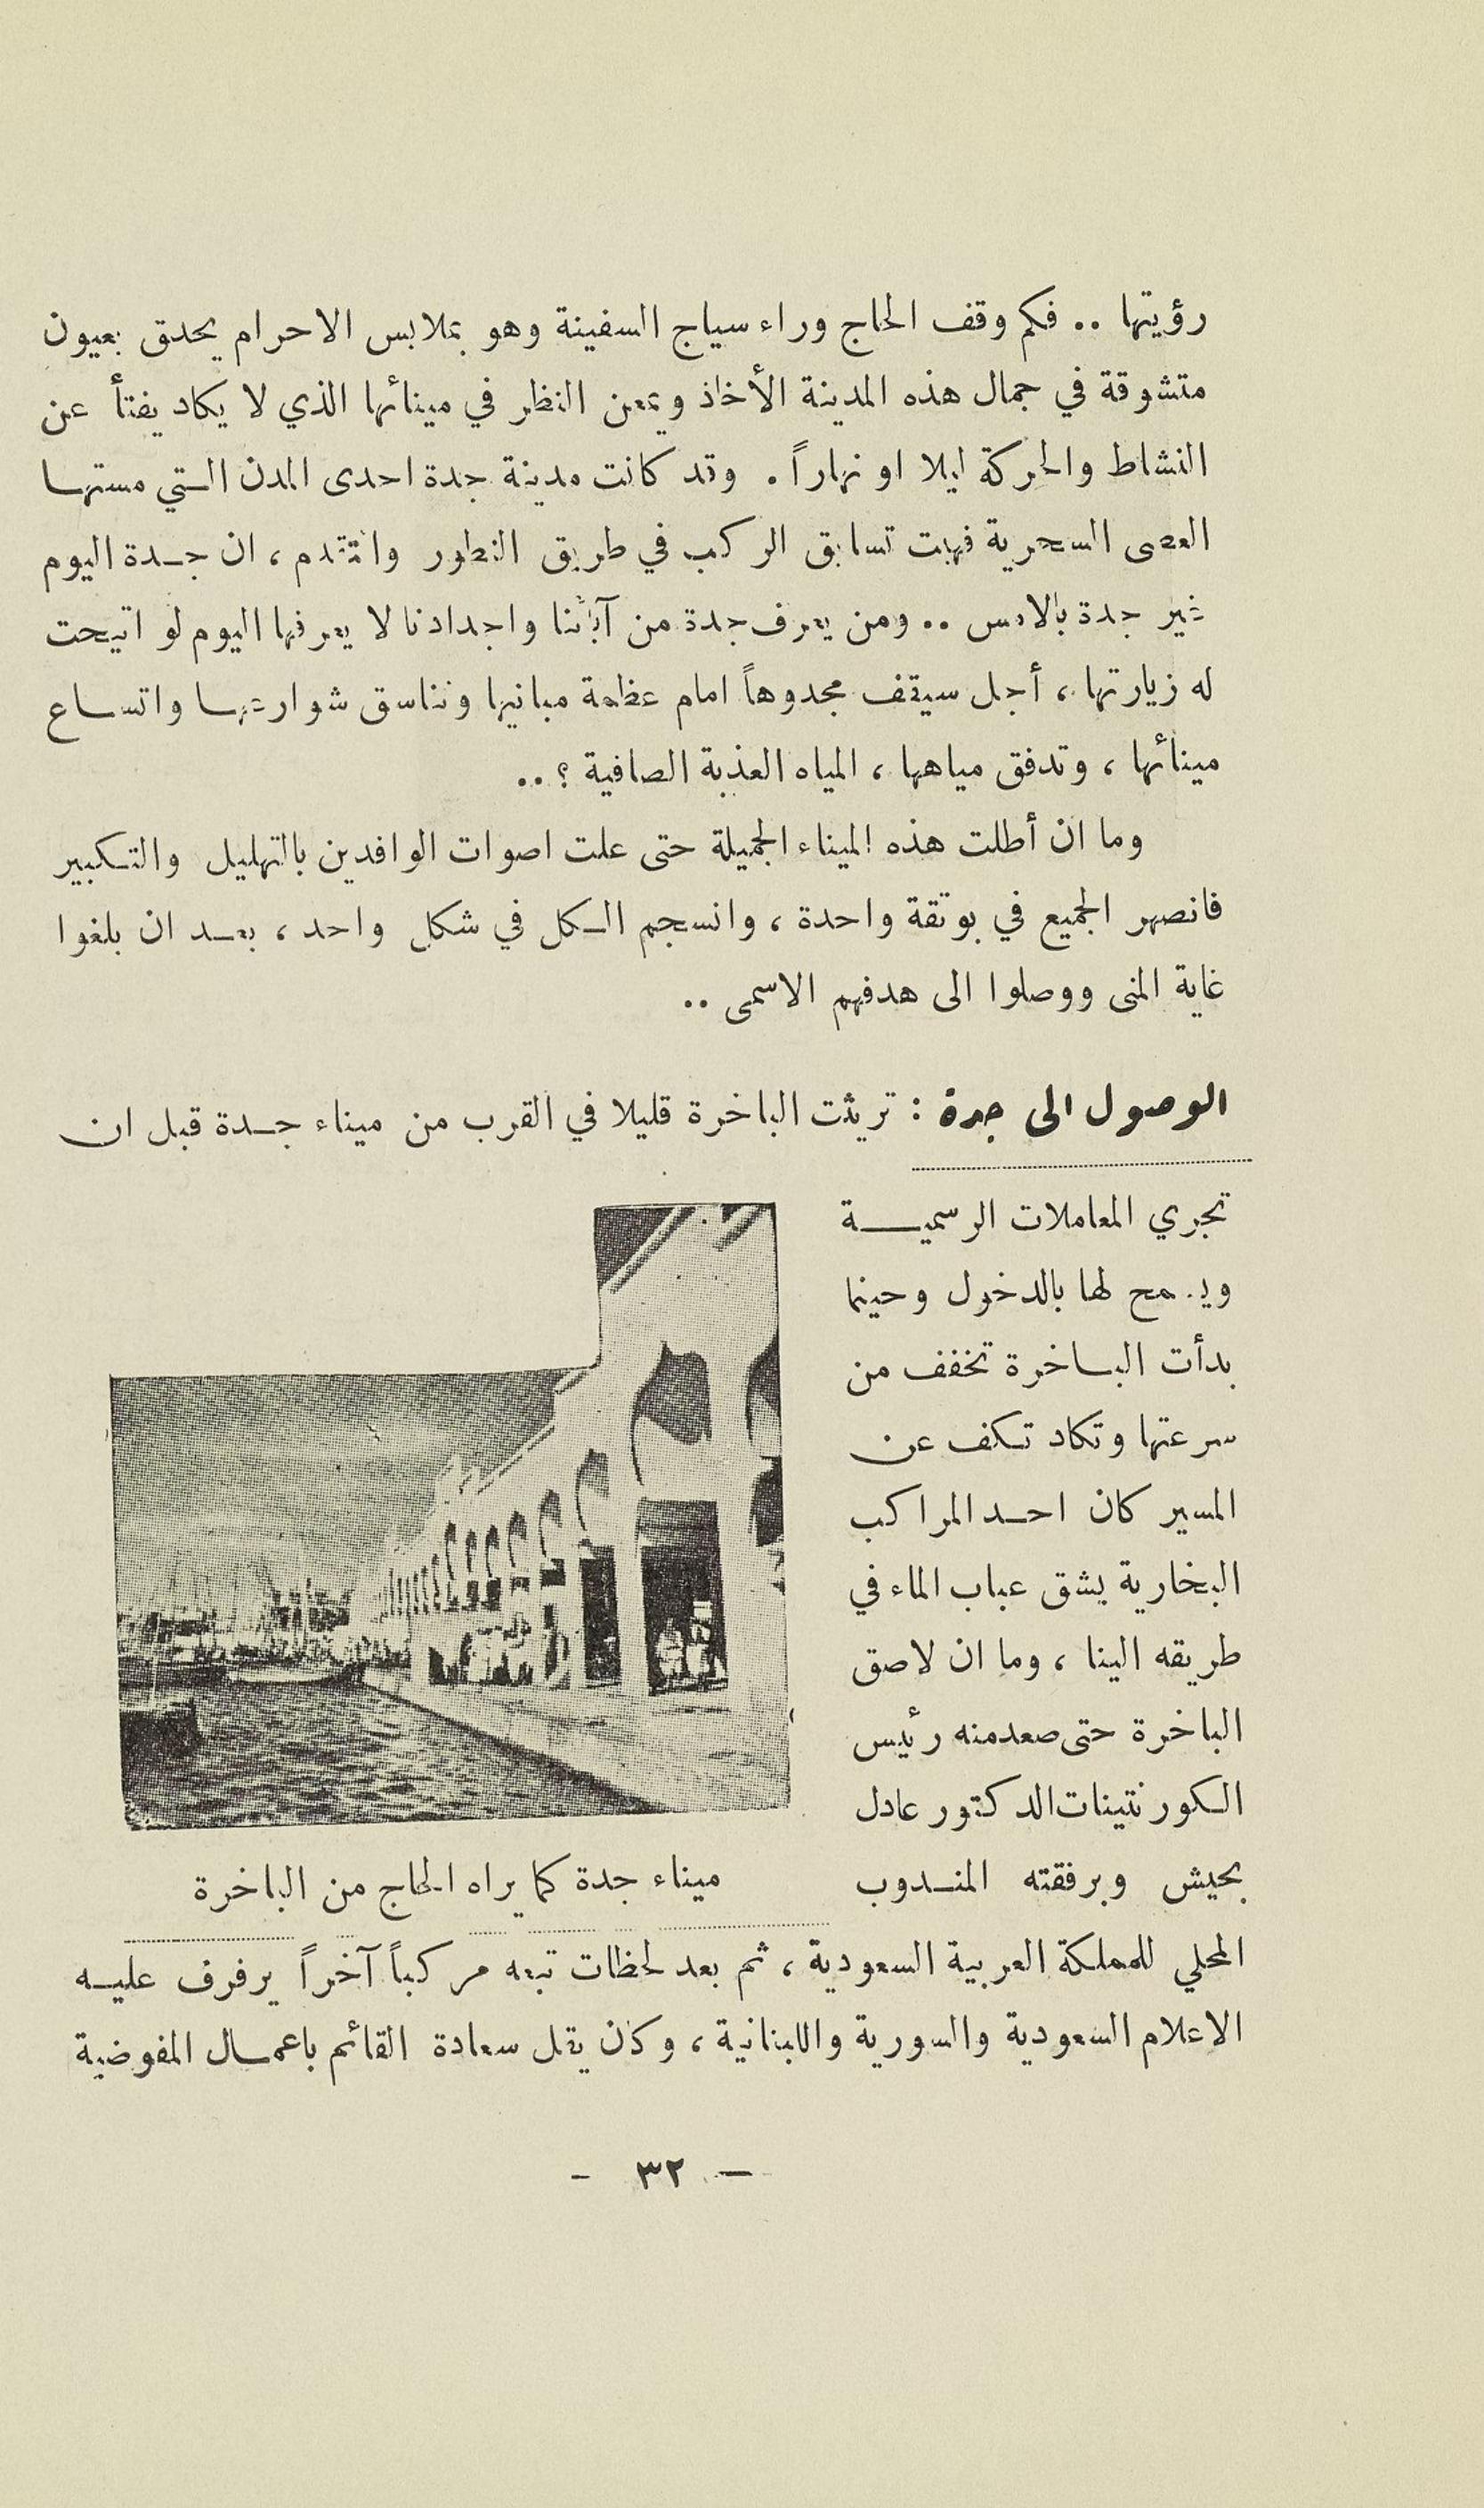 رؤيتها .. فكم وقف الحاج وراء سياج السفينة وهو بملابس الاحرام يحدق بعيون
متشوقة في جمال هذه المدينة الأخاذ ويمعن النظر في مينائها الذي لا يكاد يفتأ عن
النشاط والحركة ليلا او نهاراً . وقد كانت مدينة جدة احدى المدن التي مستها
العصى السحرية فهبت تسابق الركب في طريق التطور والتقدم ، ان جدة اليوم
غير جدة بالامس .. ومن يعرف جدة من آبائنا واجدادنا لا يعرفها اليوم لو اتيحت
له زيارتها ، أجل سيقف مجدوهاً امام عظمة مبانيها وتناسق شوارعها واتساع
مينائها ، وتدفق مياهها ، المياه العذبة الصافية ؟ ..
وما ان أطلت هذه الميناء الجميلة حتى علت اصوات الوافدين بالتهليل والتكبير
فانصهر الجميع في بوتقة واحدة ، وانسجم الكل في شكل واحد ، بعد ان بلغوا
غاية المنى ووصلوا الى هدفهم الاسمى ..
الوصول الى جدة : تريثت الباخرة قليلا في القرب من ميناء جدة قبل ان
تجري المعاملات الرسمية
ويسمح لها بالدخول وحينما
بدأت الباخرة تخفف من
سرعتها وتكاد تكف عن
المسير كان احد المراكب
البخارية يشق عباب الماء في
طريقه الينا ، وما ان لاصق
الباخرة حتى صعد منه رئيس
الكورنتينات الدكتور عادل
بحيش وبرفقته المندوب
ميناء جدة كما يراه الحاج من الباخرة
المحلي للمملكة العربية السعودية ، ثم بعد لحظات تبعه مركباً آخراً يرفرف عليه
الاعلام السعودية والسورية واللبنانية ، وكان يقل سعادة القائم باعمال المفوضية
- ٣٢ -